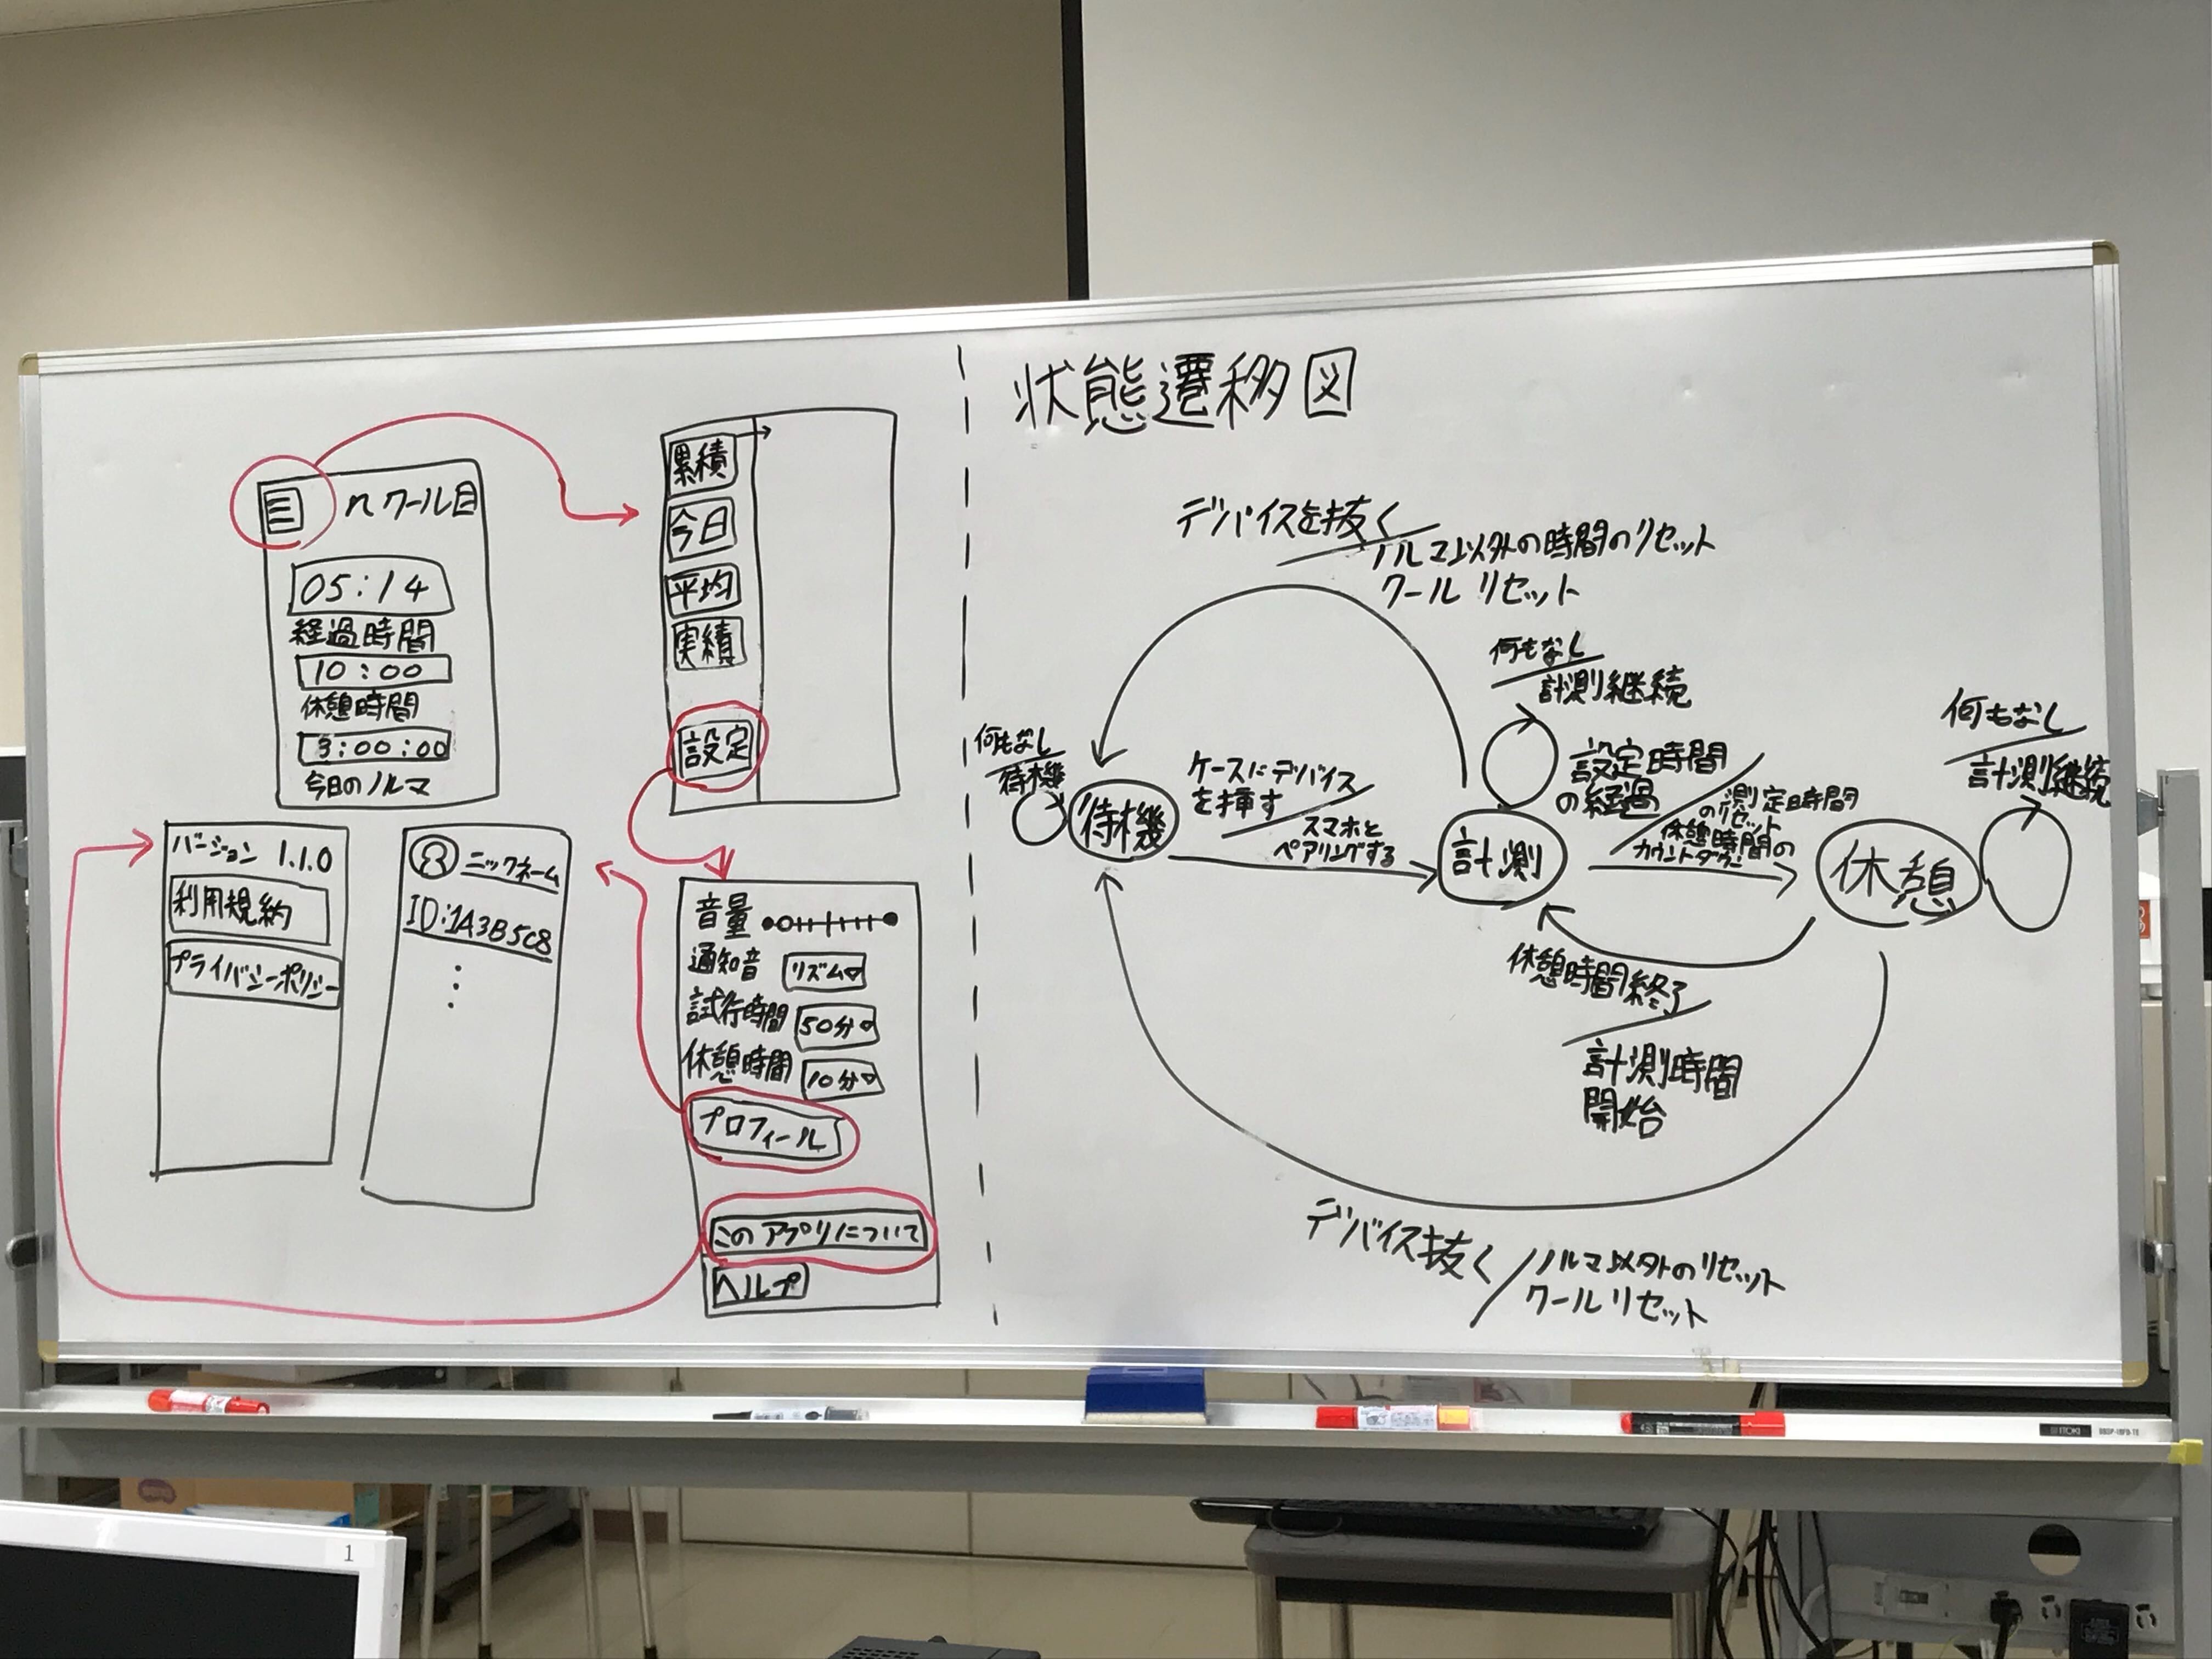 nクール目
05:14
経過時間
10:00
休憩時間
3:00:00
今日のノルマ
累積
今日
平均
実績
設定
バージョン 1.1.0
利用規約
プライバシーポリシー
ニックネーム
ID:1A3B5C8
音量
通知音 リズム
試行時間 50分
休憩時間 10分
プロフィール
このアプリについて
ヘルプ
状態遷移図
デバイスを抜く
ノルマ以外の時間のリセット
クールリセット
何もなし
待機
待機
ケースにデバイス
を挿す
スマホと
ペアリングする
何もなし
計測継続
計測
設定時間
の経過
測定時間
のリセット
休憩時間の
カウントダウン
何もなし
計測継続
休憩
休憩時間終了
計測時間
開始
デバイス抜く
ノルマ以外のリセット
クールリセット
1
ITOKI